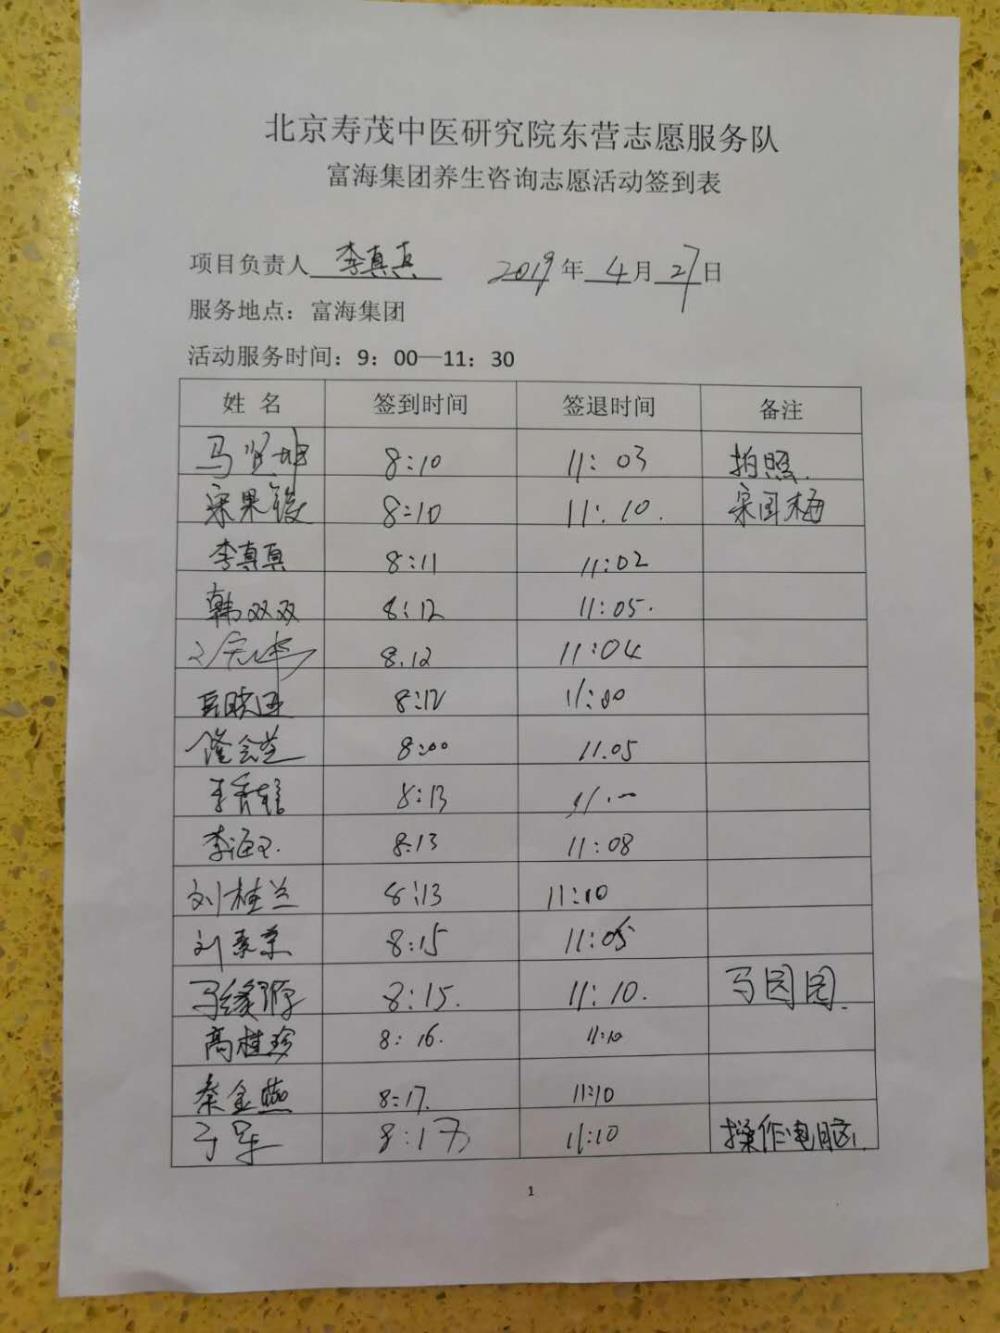 北京寿茂中医研究院东营志愿服务队
富海集团养生咨询志愿活动签到表
项目负责人 李真真 2019年 4月 27日
服务地点：富海集团
活动服务时间：9：00—11：30
姓 名 签到时间 签退时间 备注
8:10 11:03 拍照.
宋果馥 8:10 11:10. 宋国梅
李真真 8:11 11:02
韩双双 8:12 11:05.
8.12 11:04
8:12 11:00
隆会芝 8:00 11.05
8:13
李海玉. 8:13 11:08
刘桂兰 8:13 11:10
刘素荣 8:15 11:05
马缘源 8:15. 11:10. 马园园.
高桂珍 8: 16. 11:10
秦金燕 8:17. 11:10
马军 8:17 11:10 操作电脑.
1